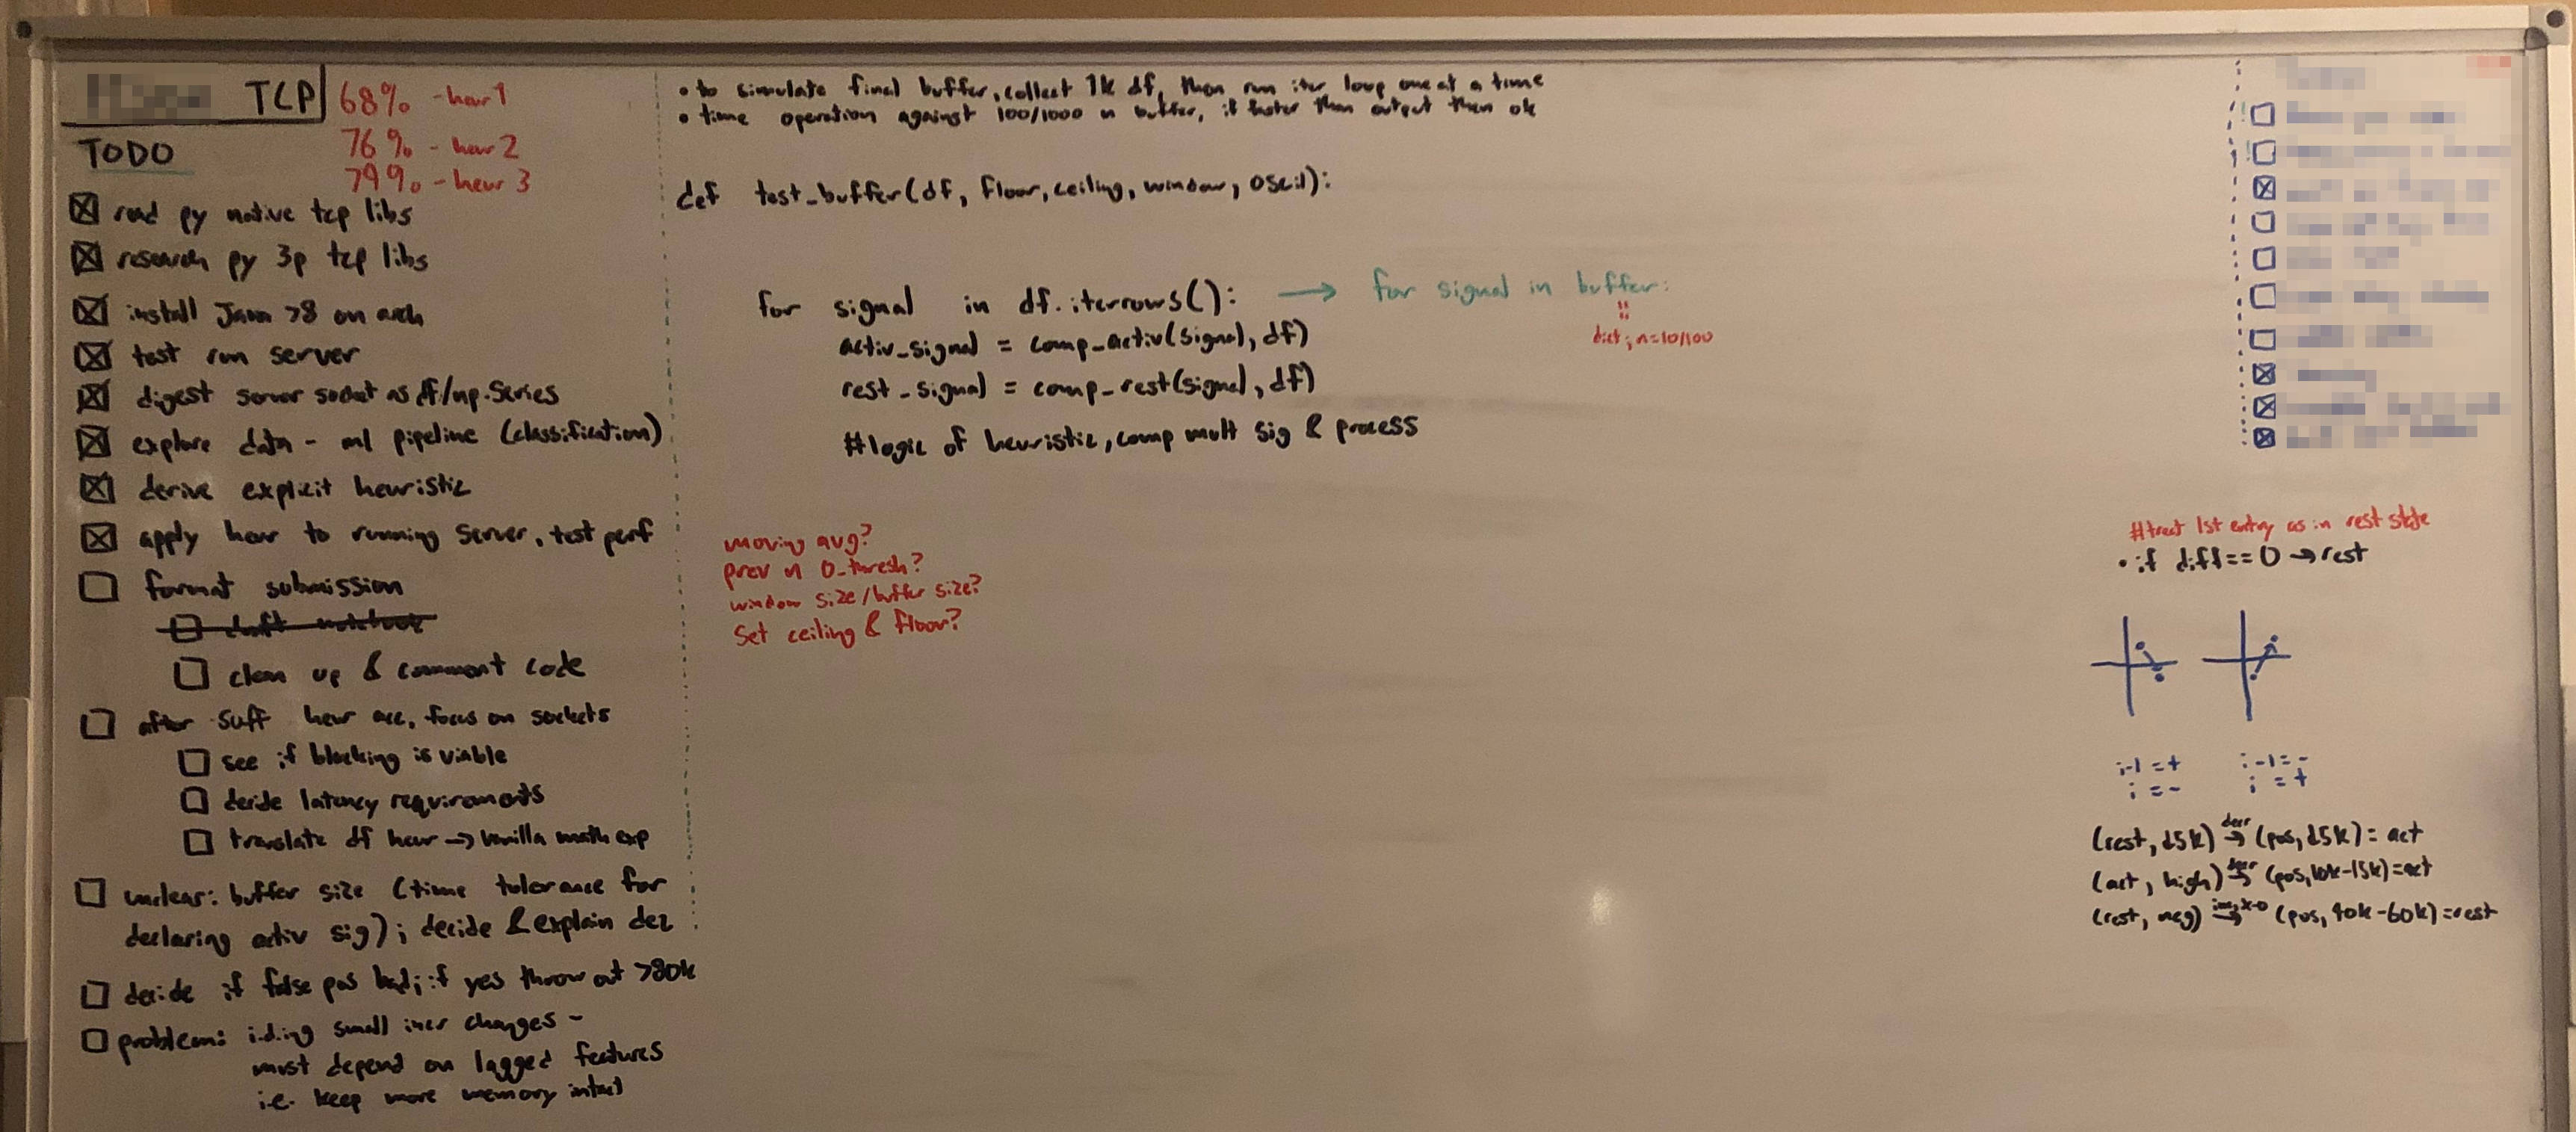 TCP
68% - heur 1
76% - heur 2
79% - heur 3
TODO
read py native tcp libs
research py 3p tcp libs
install Java >8 on arch
test run server
digest server socket as df/np.Series
explore data - ml pipeline (classification)
derive explicit heuristic
apply heur to running server, test perf
format submission
draft notebook
clean up & comment code
after suff heur acc, focus on sockets
see if blocking is viable
decide latency requirements
translate df heur → vanilla math exp
unclear: buffer size (time tolerance for
declaring activ sig); decide & explain dec
decide if false pos bad; if yes throw out >80k
problem: i.d.ing small incr changes -
must depend on lagged features
i.e. keep more memory intact
• to simulate final buffer, collect 1k df, then run iter loop one at a time
• time operation against 100/1000 n buffer, if faster than output then ok
def test_buffer(df, floor, ceiling, window, oscil):
for signal in df.iterrows(): → for signal in buffer:
dict; n=10/100
activ_signal = comp_activ(signal, df)
rest_signal = comp_rest(signal, df)
#logic of heuristic, comp mult sig & process
moving avg?
prev n 0_thresh?
window size/buffer size?
Set ceiling & floor?
#treat 1st entry as in rest state
• if diff==0 → rest
i-1 = + i-1 = -
i = - i = +
(rest, 15k) → (pos, 15k) = act
(act, high) → (pos, 10k-15k) = act
(rest, neg) → (pos, 40k-60k) = rest